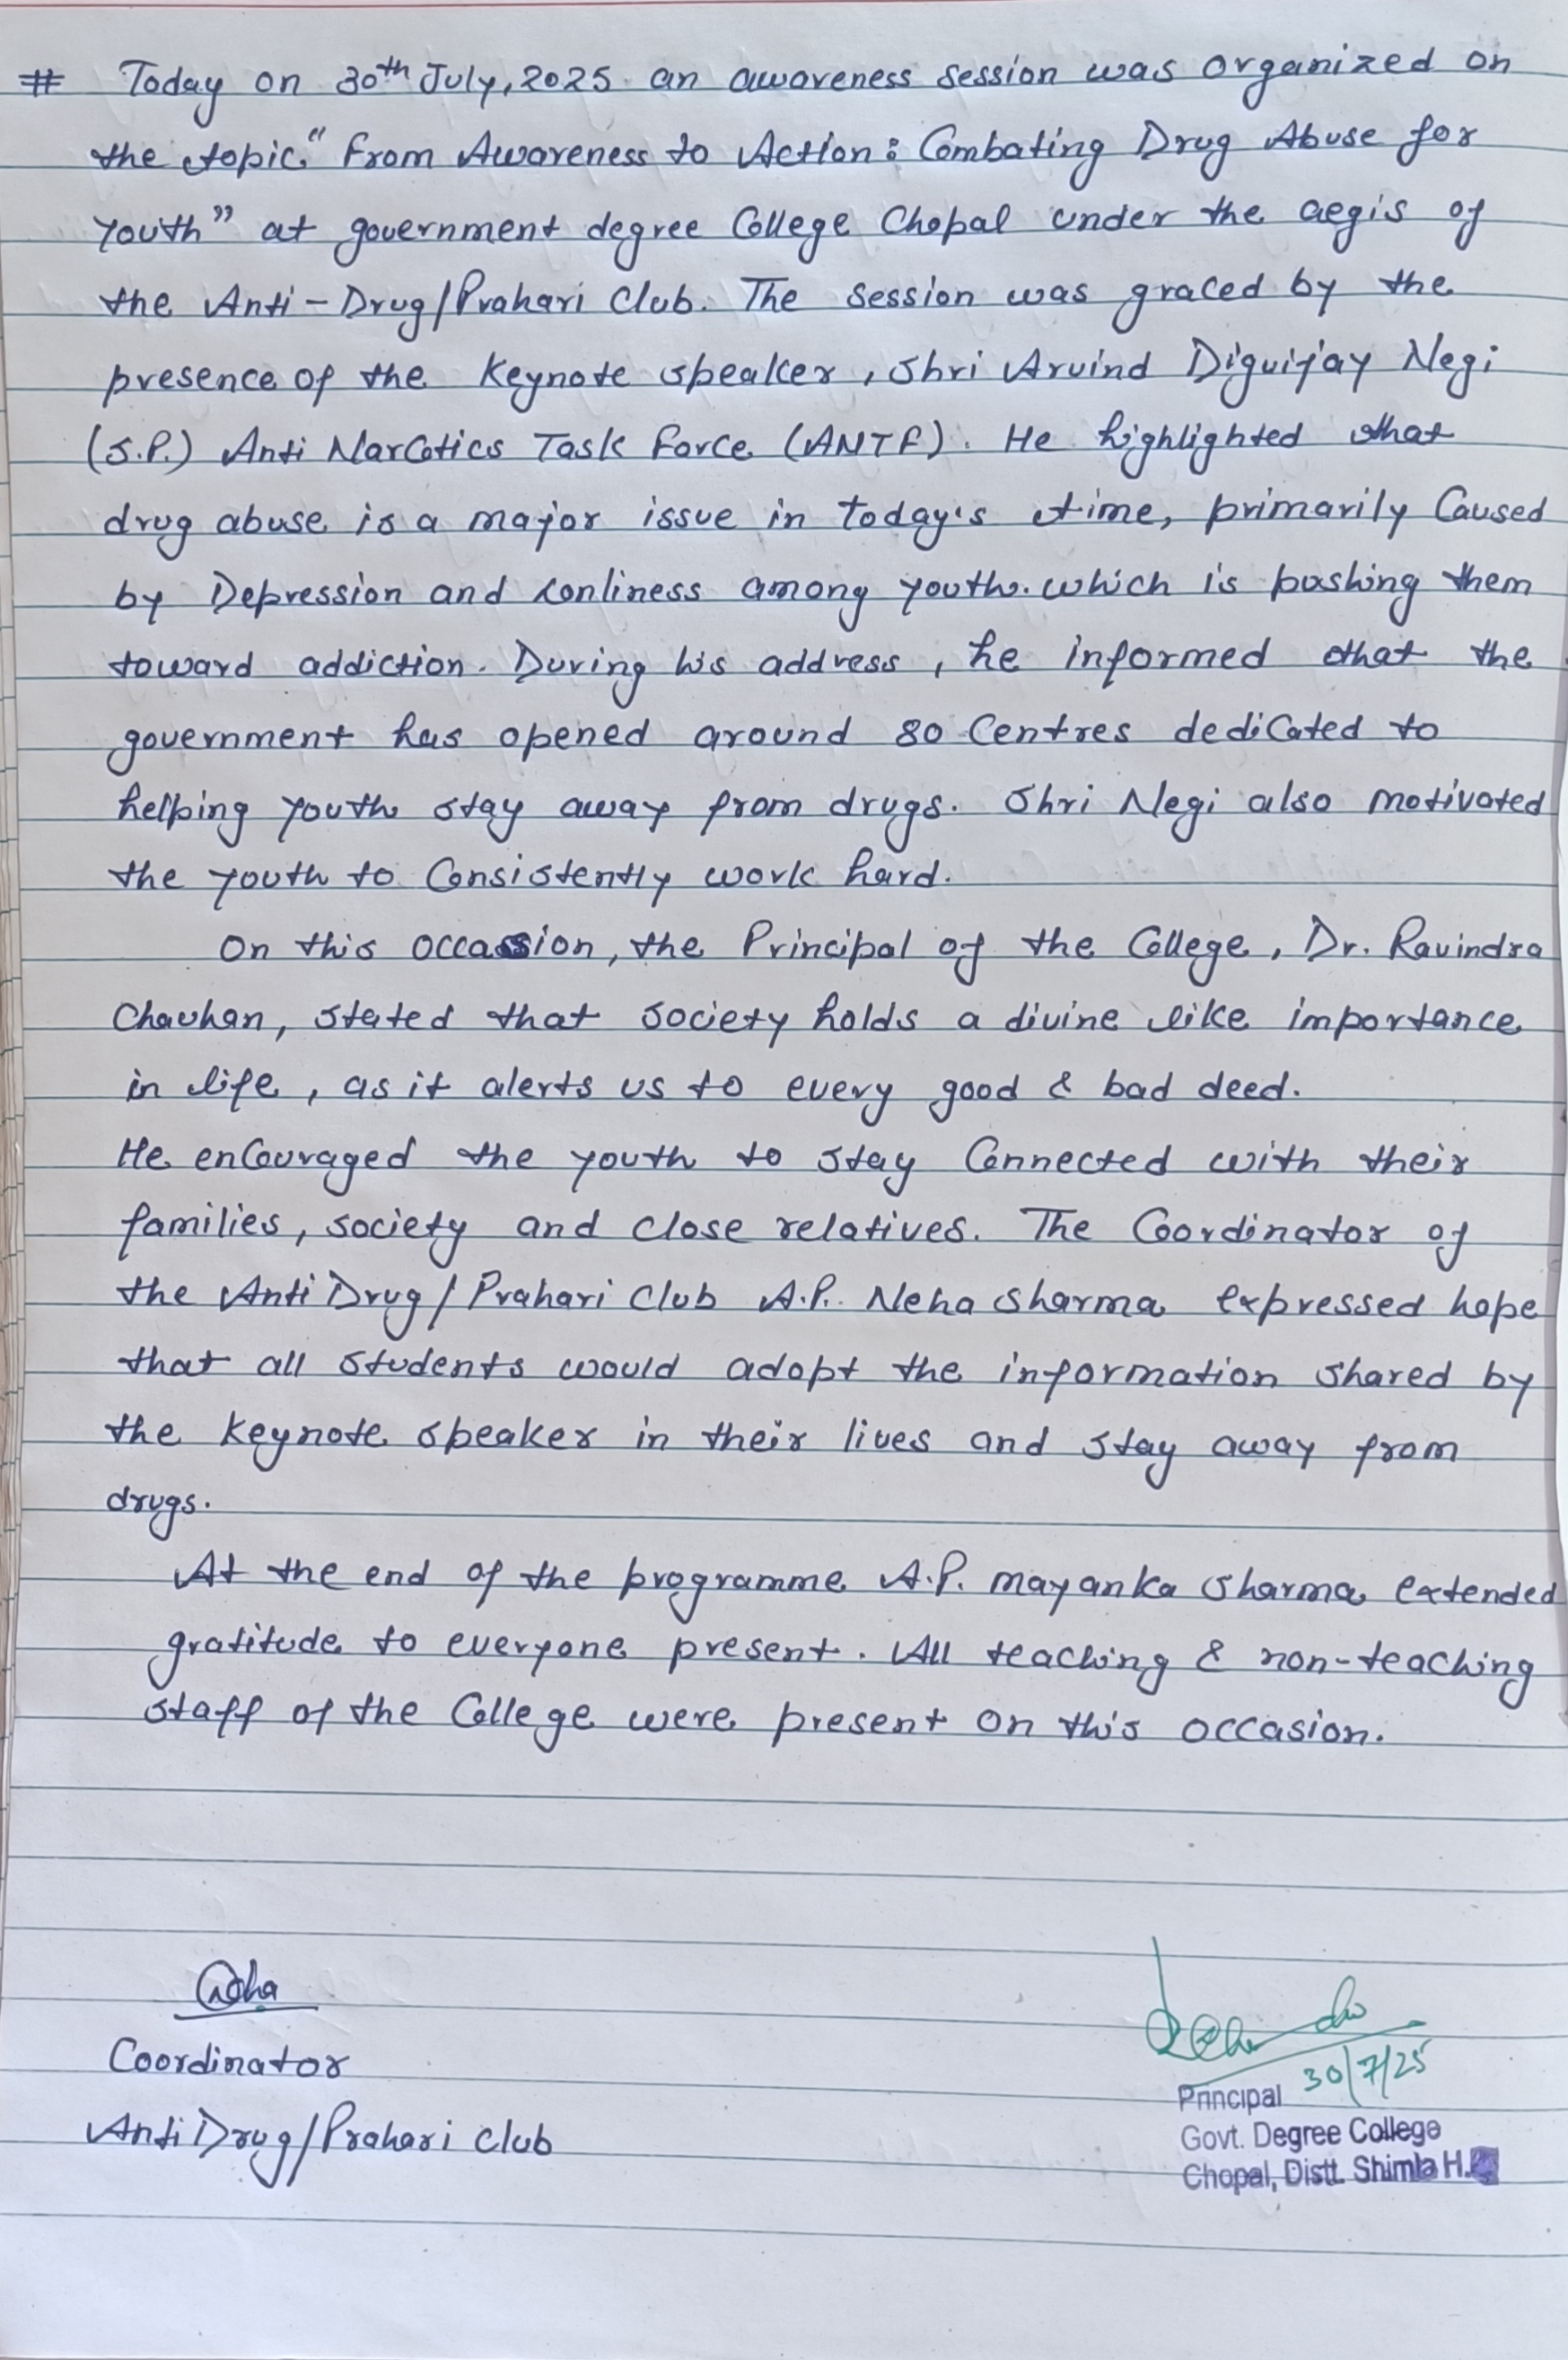 # Today on 30th July, 2025 an awareness session was organized on
the topic "From Awareness to Action : Combating Drug Abuse for
Youth" at government degree College Chopal under the aegis of
the Anti-Drug/Prahari Club. The session was graced by the
presence of the Keynote speaker, Shri Arvind Digvijay Negi
(S.P.) Anti Narcotics Task Force (ANTF). He highlighted that
drug abuse is a major issue in today's time, primarily Caused
by Depression and lonliness among youth. which is pushing them
toward addiction. During his address, he informed that the
government has opened around 80 Centres dedicated to
helping youth stay away from drugs. Shri Negi also motivated
the youth to Consistently work hard.
On this occassion, the Principal of the College, Dr. Ravindra
Chauhan, stated that society holds a divine like importance
in life, as it alerts us to every good & bad deed.
He encouraged the youth to stay Connected with their
families, society and close relatives. The Coordinator of
the Anti Drug/Prahari Club A.P. Neha Sharma expressed hope
that all students would adopt the information shared by
the keynote speaker in their lives and stay away from
drugs.
At the end of the programme A.P. mayanka Sharma extended
gratitude to everyone present. All teaching & non-teaching
staff of the College were present on this occasion.
Neha
Coordinator
Anti Drug/Prahari Club
30/7/25
Principal
Govt. Degree College
Chopal, Distt. Shimla H.